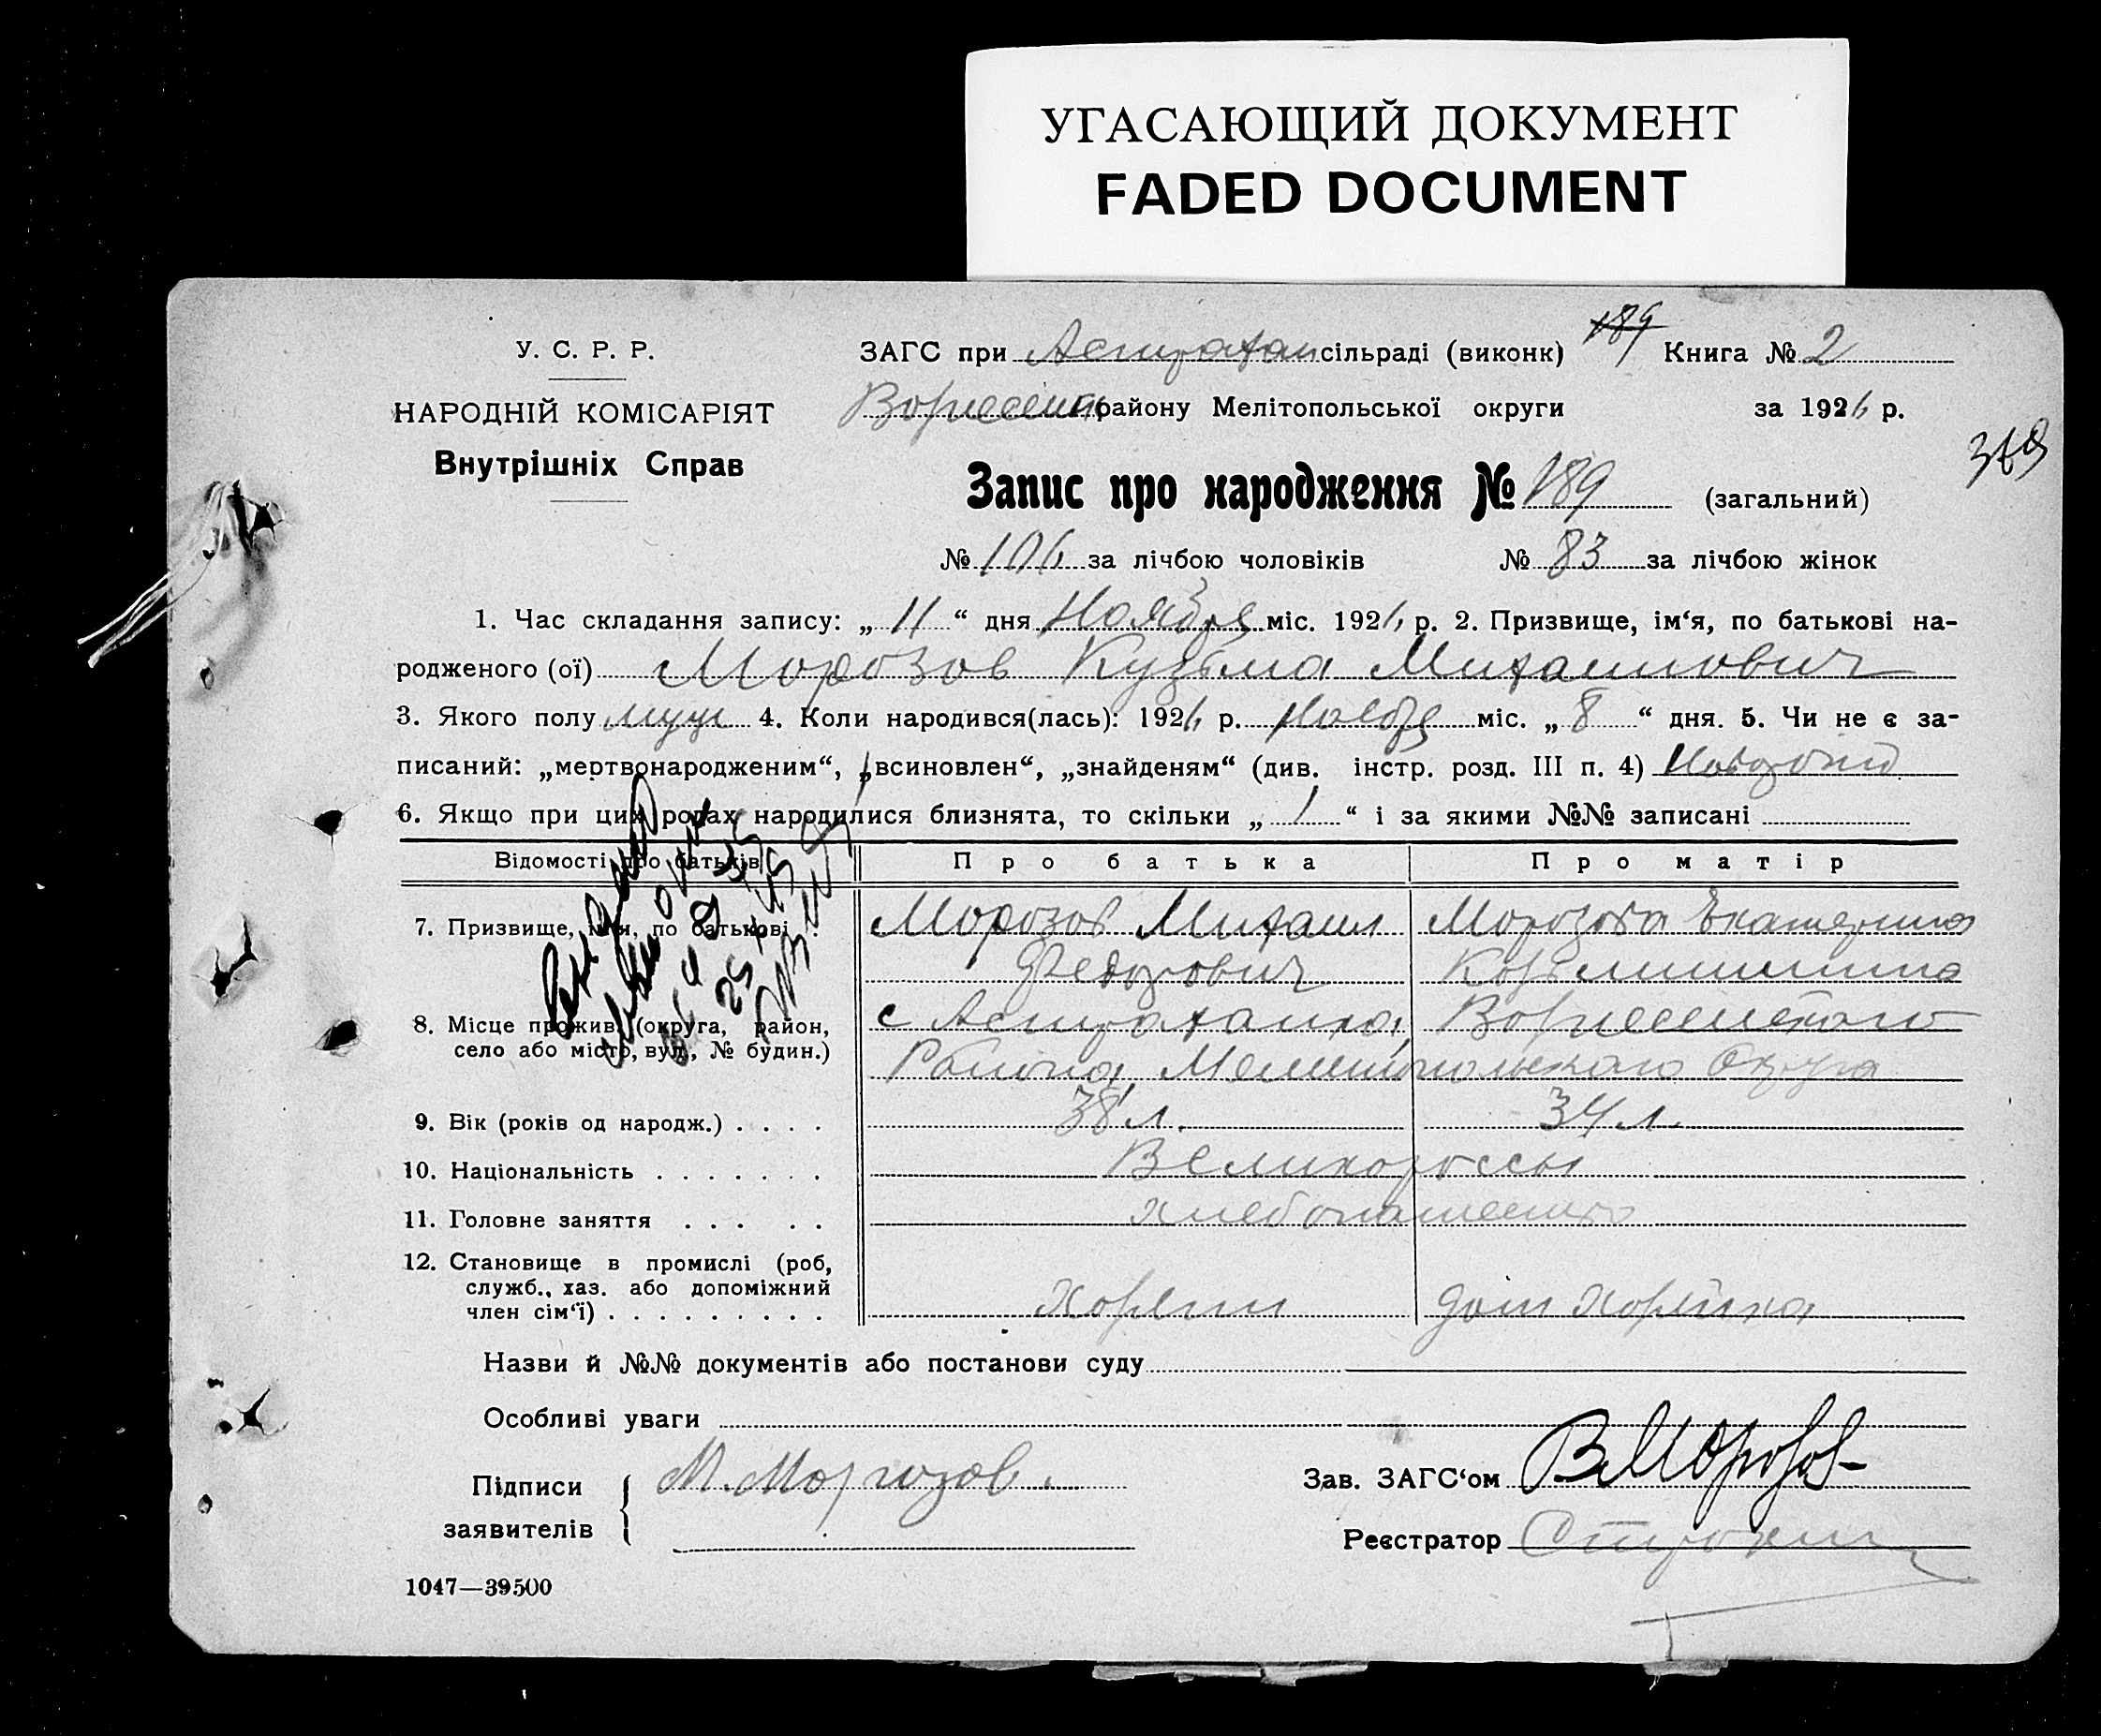 УГАСАЮЩИЙ ДОКУМЕНТ
FADED DOCUMENT
У. С. Р. Р.
НАРОДНІЙ КОМІСАРІЯТ
Внутрішніх Справ
ЗАГС при Астрахан сільраді (виконк) 189 Книга № 2
району Мелітопольської округи за 1926 р.
379
Запис про народження № 189 (загальний)
№ 106 за лічбою чоловіків № 83 за лічбою жінок
1. Час складання запису: „ 11 “ дня Ноября міс. 1926 р. 2. Призвище, ім‘я, по батькові на-
родженого (ої) Морозов Кузьма Михаилович
3. Якого полу муж 4. Коли народився(лась): 1926 р. Ноября міс. „ 8 “ дня. 5. Чи не є за-
писаний: „мертвонародженим“, „всиновлен“, „знайденям“ (див. інстр. розд. III п. 4)
6. Якщо при цих родах народилися близнята, то скільки „ 1 “ і за якими №№ записані
Відомості про батьків Про батька Про матір
7. Призвище, ім‘я, по батькові . Морозов Михаил Морозова Екатерина
Федорович Козьминишна
8. Місце прожив. (округа, район, с Астраханка, Вознесенского
село або місто, вул., № будин.) Района, Мелитопольского Округа
9. Вік (років од народж.) . . . . 38 л. 34 л.
10. Національність . . . . . . . Великороссы
11. Головне заняття . . . . . хлебопашество
12. Становище в промислі (роб,
служб., хаз. або допоміжний
член сім‘ї) . . . . . . . . . Хозяин дом хозяйка
Назви й №№ документів або постанови суду
Особливі уваги
Підписи заявителів М. Морозов.
Зав. ЗАГС‘ом В Морозов
Реєстратор
1047—39500